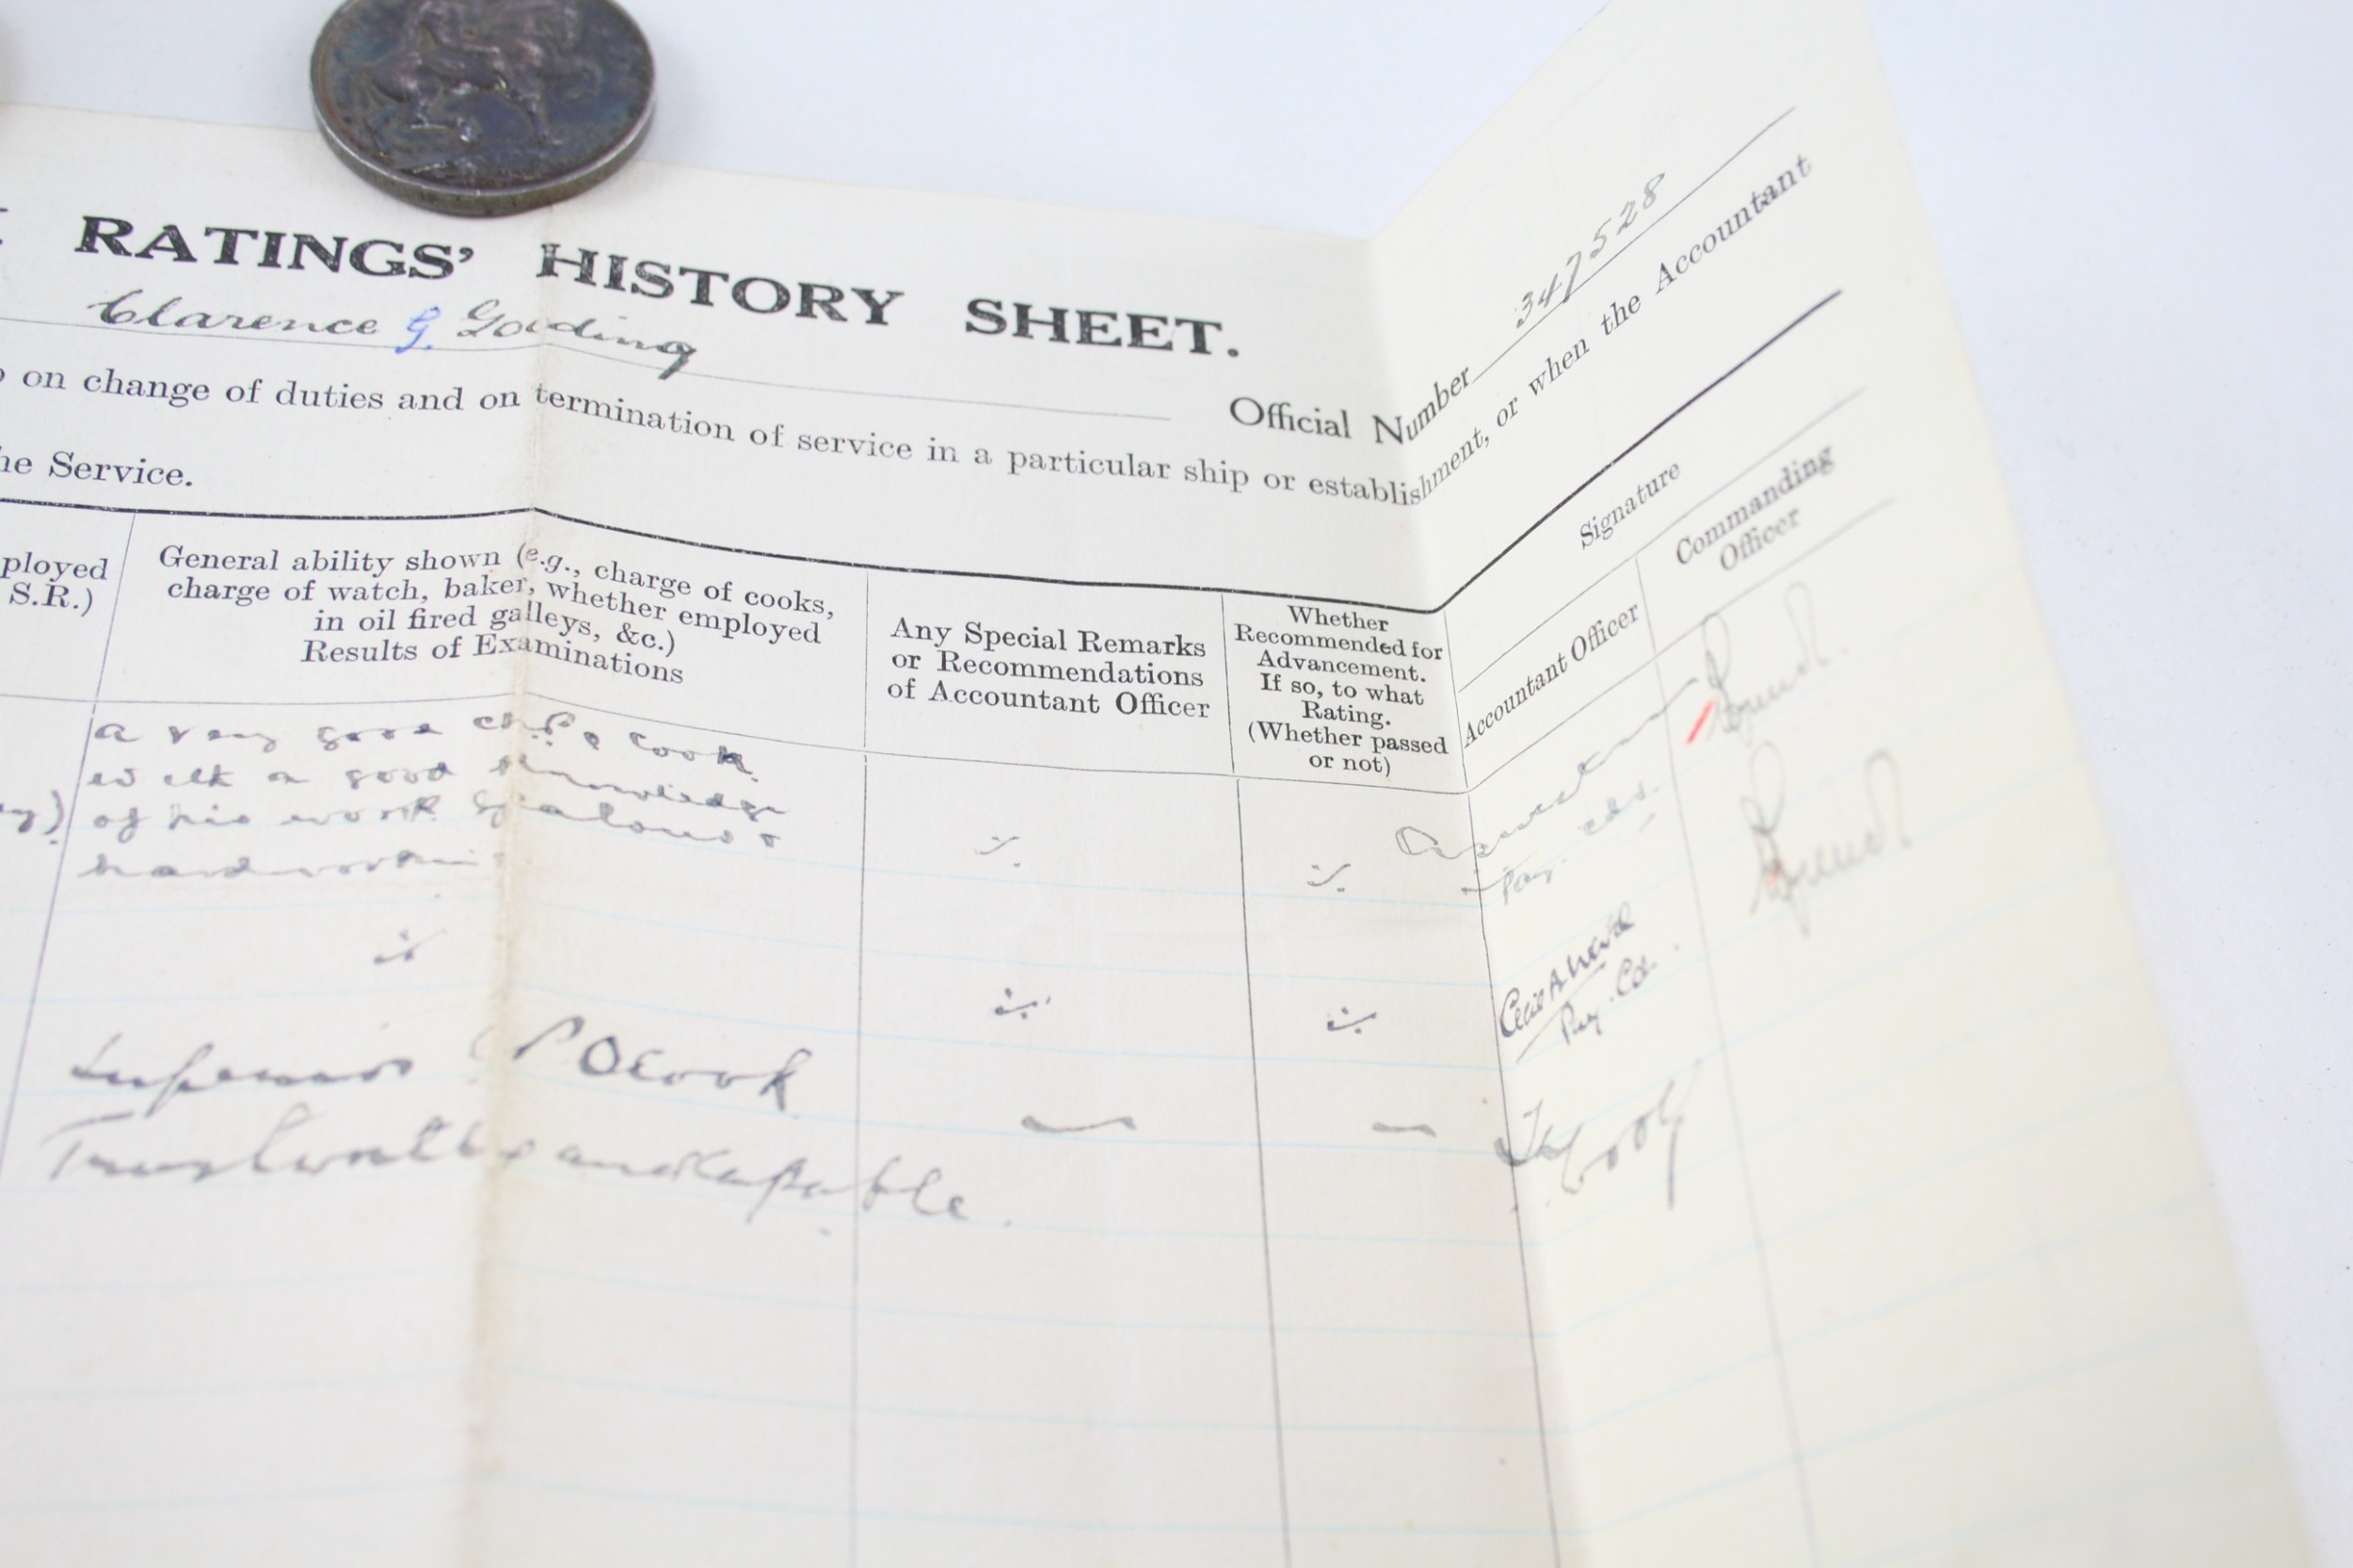 RATINGS' HISTORY SHEET.
Clarence G. Golding
Official Number 347528
on change of duties and on termination of service in a particular ship or establishment, or when the Accountant
he Service.
ployed
S.R.)
General ability shown (e.g., charge of cooks,
charge of watch, baker, whether employed
in oil fired galleys, &c.)
Results of Examinations
Any Special Remarks
or Recommendations
of Accountant Officer
Whether
Recommended for
Advancement.
If so, to what
Rating.
(Whether passed
or not)
Signature
Accountant Officer
Commanding
Officer
a very good cook
with a good knowledge
of his work zealous &
hardworking
Pay. Cdr.
Cecil A.
Pay. Cd.
Superior P O Cook
Trustworthy and capable.